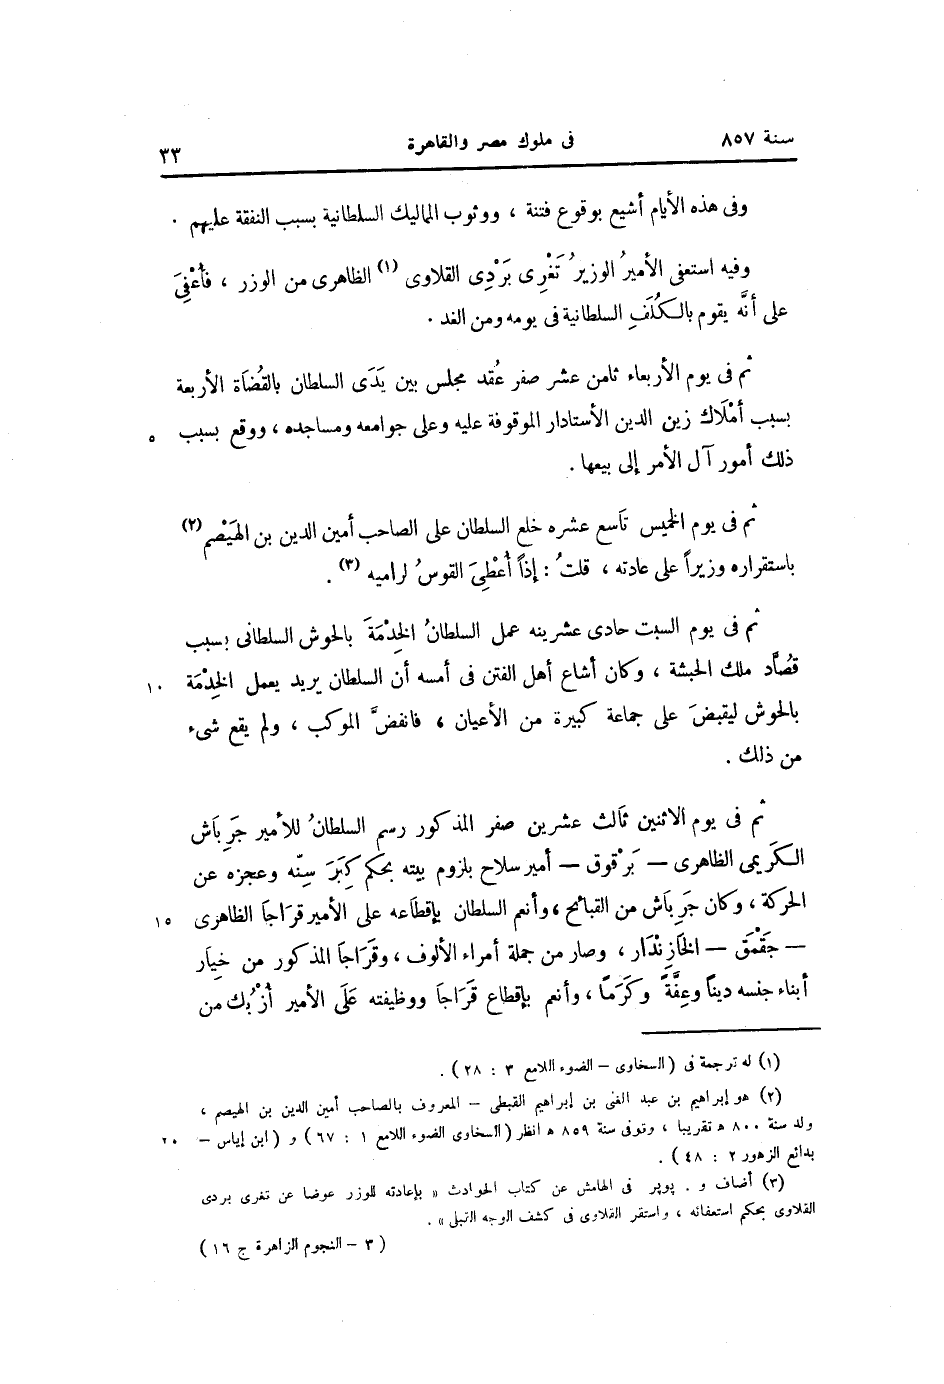 سنة ٨٥٧ فى ملوك مصر والقاهرة ٣٣
وفى هذه الأيام أشيع بوقوع فتنة ، ووثوب المماليك السلطانية بسبب النفقة عليهم .
وفيه استعفى الأميرُ الوزيرُ تَغْرِى بَرْدِى القلاوى (١) الظاهرى من الوزر ، فأُعْفِىَ
على أنَّه يقوم بالكُلَفِ السلطانية فى يومه ومن الغد .
ثم فى يوم الأربعاء ثامن عشر صفر عُقد مجلس بين يَدَى السلطان بالقُضَاة الأربعة
بسبب أمْلَاك زين الدين الأستادار الموقوفة عليه وعلى جوامعه ومساجده ، ووقع بسبب ٥
ذلك أمور آل الأمر إلى بيعها .
ثم فى يوم الخميس تاسع عشره خلع السلطان على الصاحب أمين الدين بن الهَيْصم (٢)
باستقراره وزيراً على عادته ، قلتُ : إذاً أُعْطِىَ القوسُ لراميه (٣) .
ثم فى يوم السبت حادى عشرينه عمل السلطانُ الخِدْمَةَ بالحوش السلطانى بسبب
قصَّاد ملك الحبشة ، وكان أشاع أهل الفتن فى أمسه أن السلطان يريد يعمل الخِدْمَة ١٠
بالحوش ليقبضَ على جماعة كبيرة من الأعيان ، فانفضَّ الموكب ، ولم يقع شىء
من ذلك .
ثم فى يوم الاثنين ثالث عشرين صفر المذكور رسم السلطانُ للأمير جَرِبَاش
الكَرِيمى الظاهرى — بَرْقوق — أمير سلاح بلزوم بيته بحكم كِبَرَ سِنّه وعجزه عن
الحركة ، وكان جَرِبَاش من القبائح ، وأنعم السلطان بإقطاعه على الأمير قَرَاجَا الظاهرى ١٥
— جَقْمَق — الخَازِنْدَار ، وصار من جملة أمراء الألوف ، وقَرَاجَا المذكور من خيار
أبناء جنسه ديناً وعِفَّةً وكَرَماً ، وأنعم بإقطاع قَرَاجَا ووظيفته عَلَى الأمير أَزْبُك من
(١) له ترجمة فى (السخاوى – الضوء اللامع ٣ : ٢٨) .
(٢) هو إبراهيم بن عبد الغنى بن إبراهيم القبطى – المعروف بالصاحب أمين الدين بن الهيصم ،
ولد سنة ٨٠٠ ه تقريبا ، وتوفى سنة ٨٥٩ ه انظر (السخاوى الضوء اللامع ١ : ٦٧) و (ابن إياس – ٢٠
بدائع الزهور ٢ : ٤٨) .
(٣) أضاف و . پوپر فى الهامش عن كتاب الحوادث « بإعادته للوزر عوضا عن تغرى بردى
القلاوى بحكم استعفائه ، واستقر القلاوى فى كشف الوجه القبلى » .
( ٣ – النجوم الزاهرة ج ١٦ )